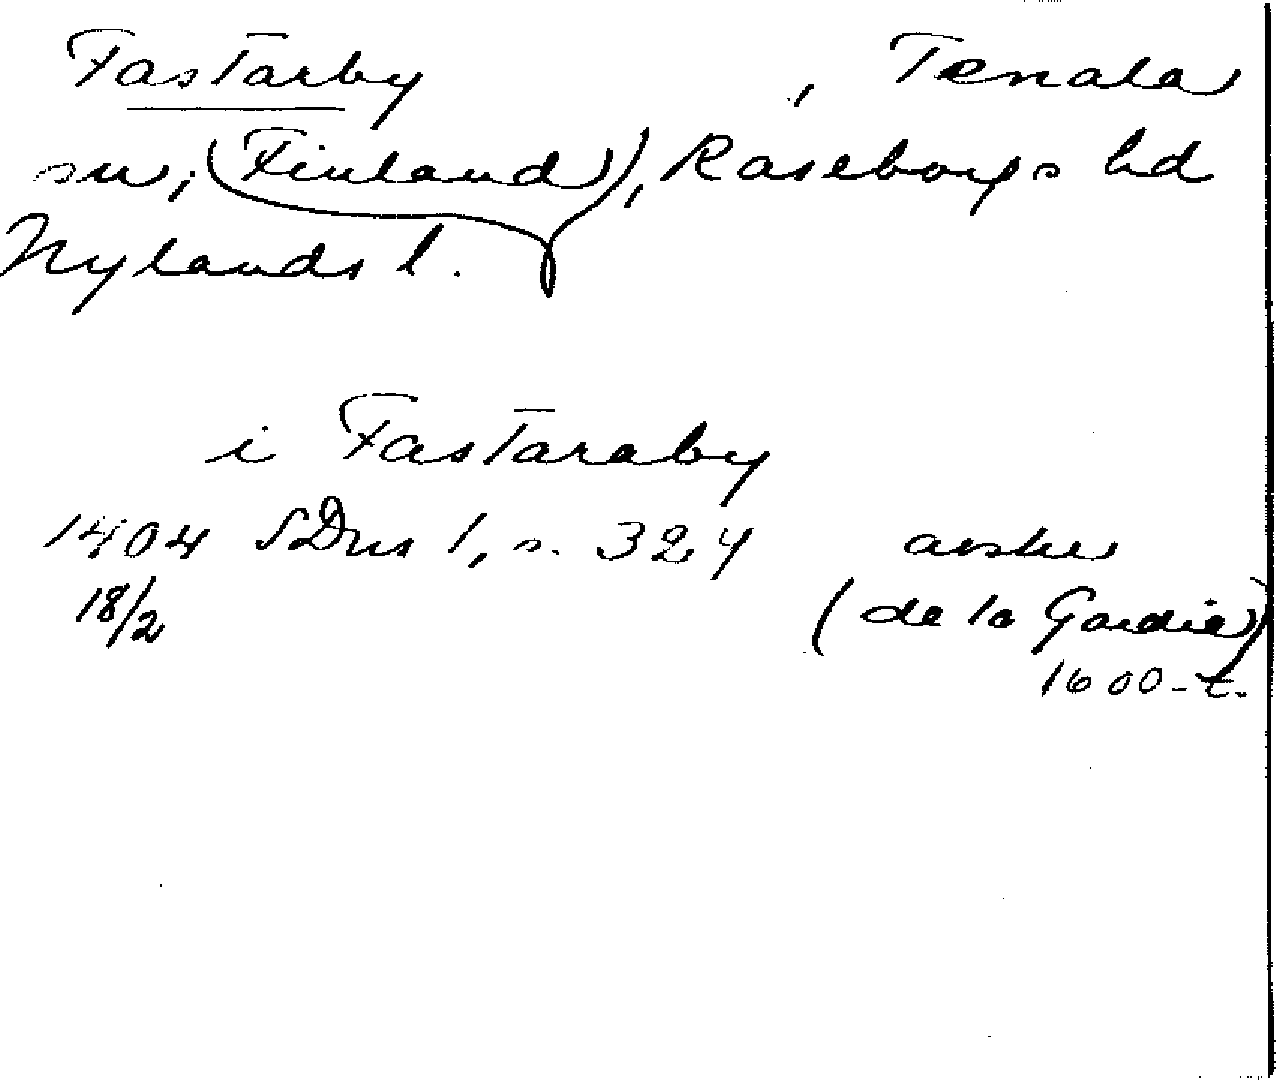 Fastarby , Tenala
sn, (Finland), Raseborgs hd
Nylands l.
i Fastaraby
1404 SDns 1, s. 324 avskr
18/2 (de la Gardie)
1600-t.